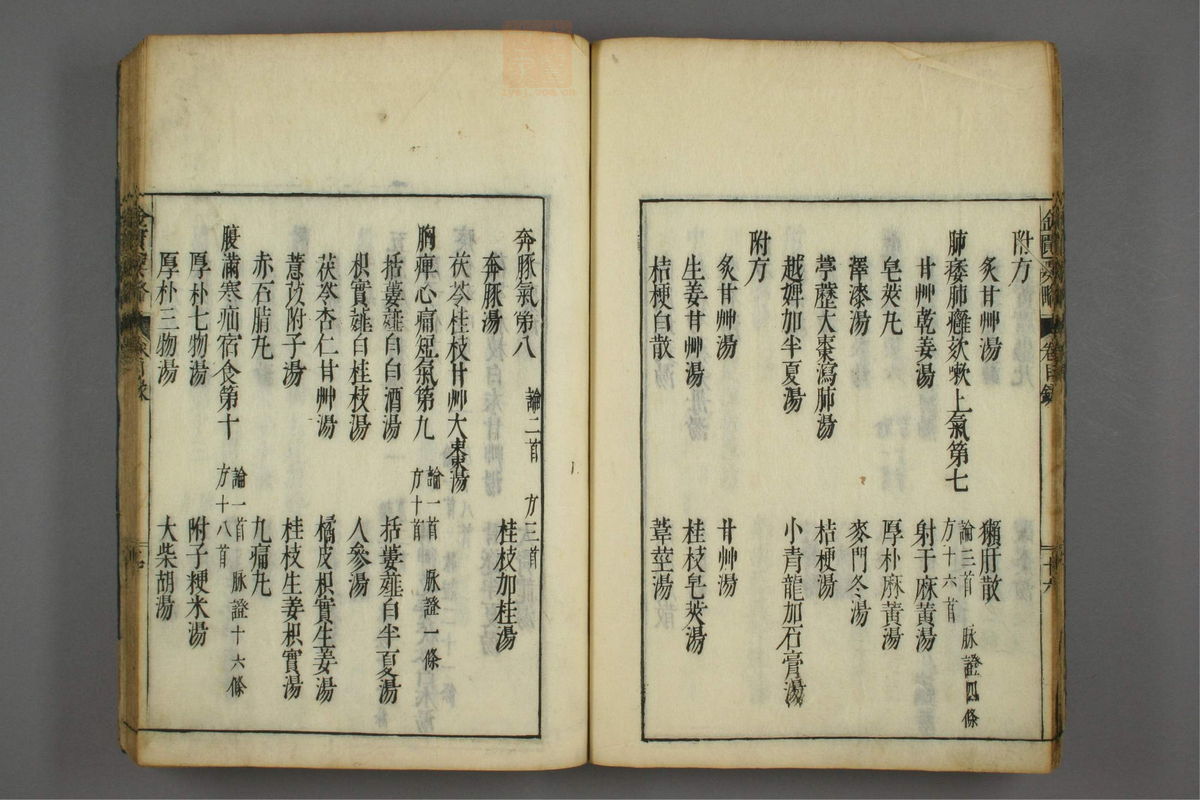 金匱要略 卷目錄 十六
附方
炙甘艸湯 獺肝散
肺痿肺癰欬嗽上氣第七 論三首 脉證四條 方十六首
甘艸乾姜湯 射干麻黃湯
皂莢丸 厚朴麻黃湯
澤漆湯 麥門冬湯
葶藶大棗瀉肺湯 桔梗湯
越婢加半夏湯 小青龍加石膏湯
附方
炙甘艸湯 甘艸湯
生姜甘艸湯 桂枝皂莢湯
桔梗白散 葦莖湯
奔豚氣第八 論二首 方三首
奔豚湯 桂枝加桂湯
茯苓桂枝甘艸大棗湯
胸痺心痛短氣第九 論一首 脉證一條 方十首
括蔞薤白白酒湯 括蔞薤白半夏湯
枳實薤白桂枝湯 人參湯
茯苓杏仁甘艸湯 橘皮枳實生姜湯
薏苡附子湯 桂枝生姜枳實湯
赤石脂丸 九痛丸
腹滿寒疝宿食第十 論一首 脉證十六條 方十八首
厚朴七物湯 附子粳米湯
厚朴三物湯 大柴胡湯
金匱要略